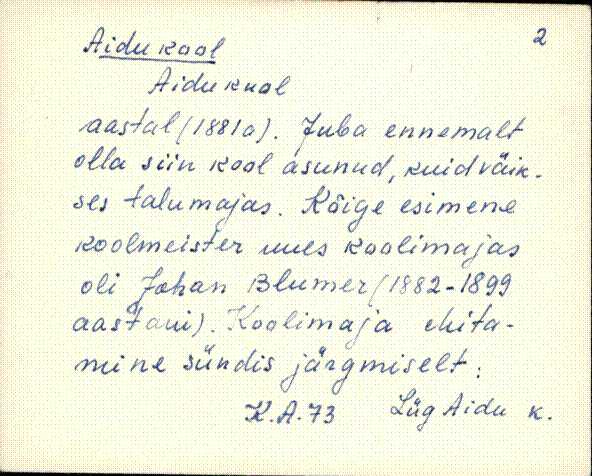 Aidu kool 2
Aidu kool
aastal (1881a). Juba ennemalt
olla siin kool asunud, kuid väik-
ses talumajas. Kõige esimene
koolmeister uues koolimajas
oli Johan Blumer (1882-1899
aastani). Koolimaja ehita-
mine sündis järgmiselt:
K.A.73 Lüg Aidu k.